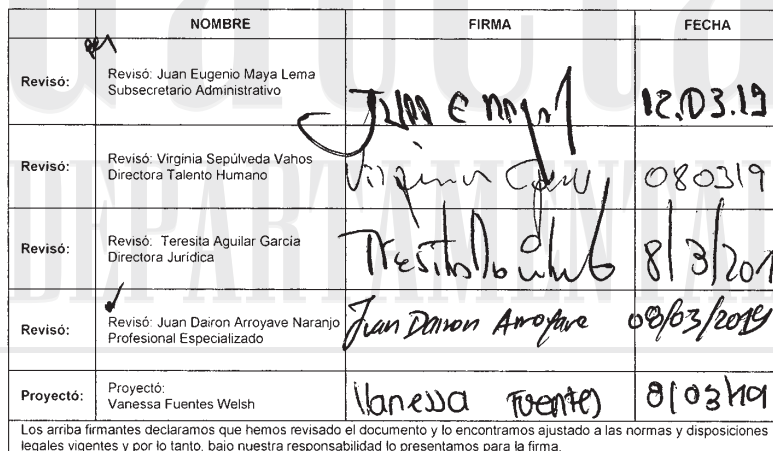 NOMBRE FIRMA FECHA
Revisó: Revisó: Juan Eugenio Maya Lema
Subsecretario Administrativo
Juan E Maya L 12.03.19
Revisó: Revisó: Virginia Sepúlveda Vahos
Directora Talento Humano
Virginia 080319
Revisó: Revisó: Teresita Aguilar García
Directora Jurídica
Teresita 8/3/201
Revisó: Revisó: Juan Dairon Arroyave Naranjo
Profesional Especializado
Juan Dairon Arroyave 08/03/2019
Proyectó: Proyectó:
Vanessa Fuentes Welsh
Vanessa Fuentes 8/03/19
Los arriba firmantes declaramos que hemos revisado el documento y lo encontramos ajustado a las normas y disposiciones
legales vigentes y por lo tanto, bajo nuestra responsabilidad lo presentamos para la firma.
DEPARTAMENTAL